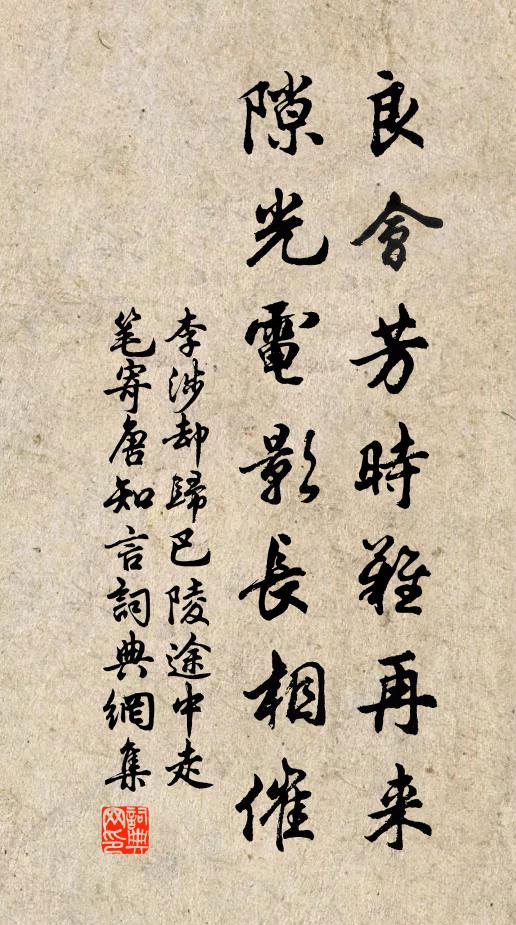 良會芳時難再来
隙光電影長相催
李涉却歸巴陵途中走
笔寄唐知言詞典網集
詞典
网印